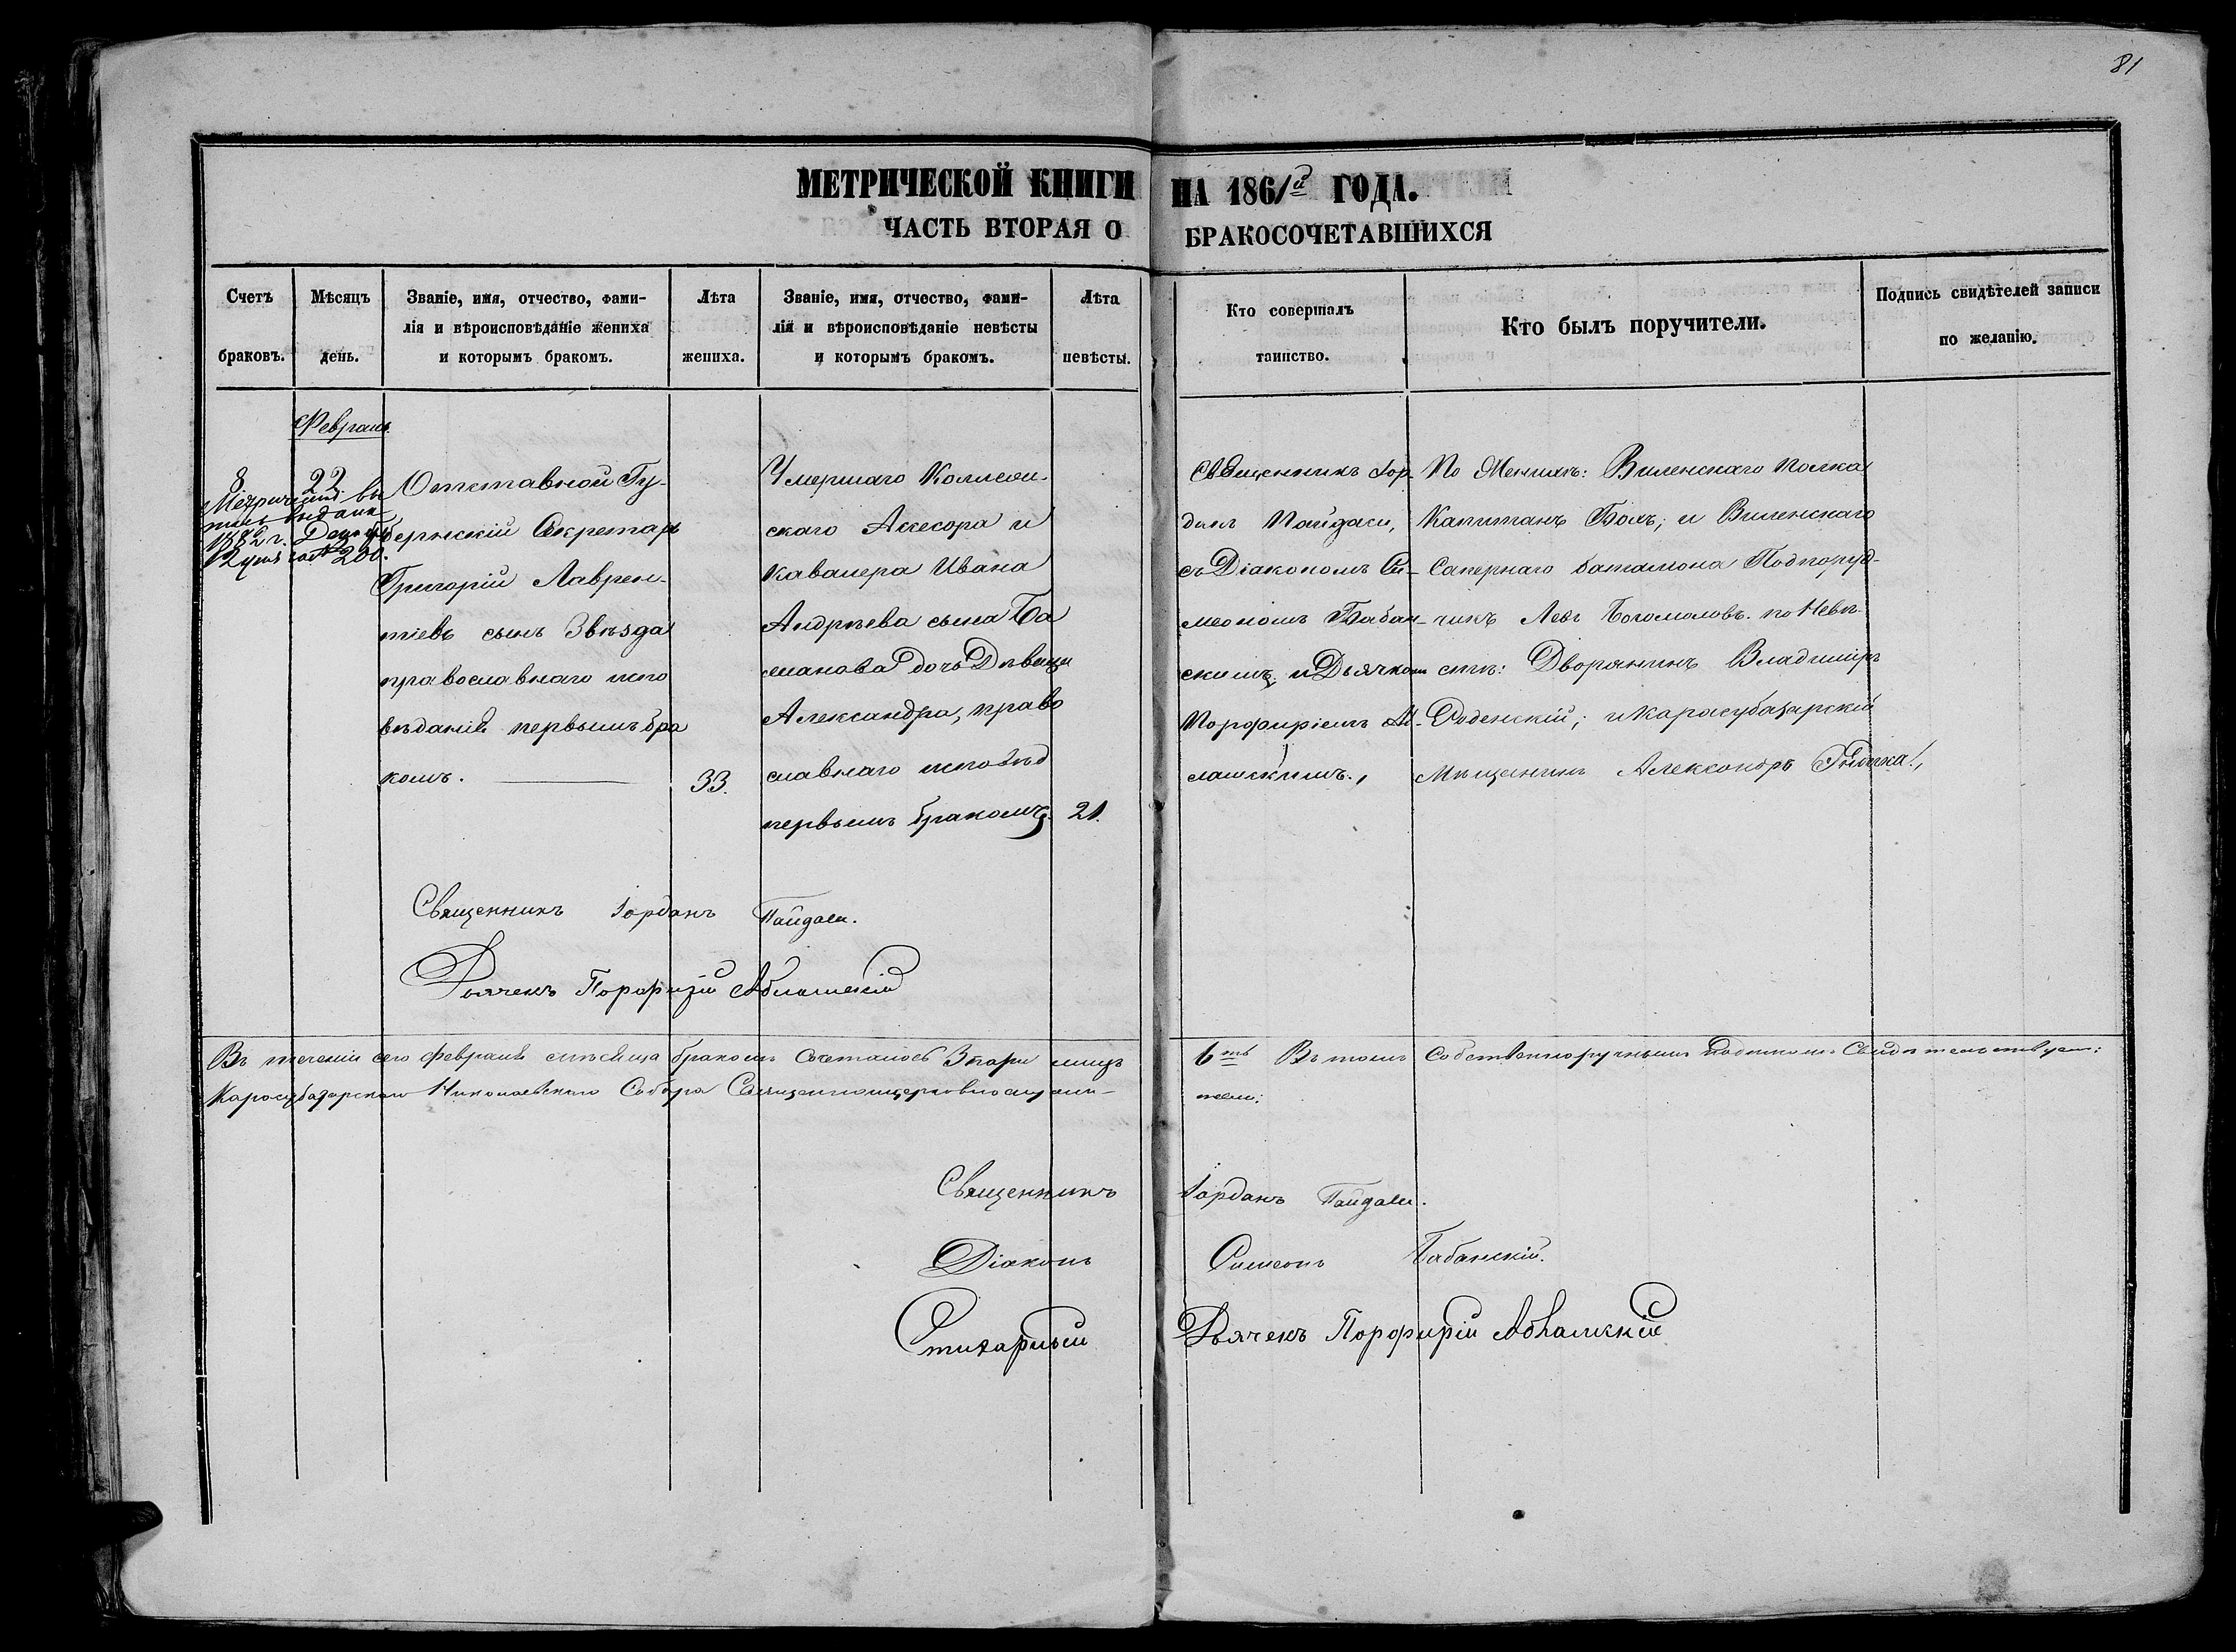 81
МЕТРИЧЕСКОЙ КНИГИ НА 1861й ГОДА.
ЧАСТЬ ВТОРАЯ О БРАКОСОЧЕТАВШИХСЯ
Счетъ браковъ.
Мѣсяцъ день.
Званіе, имя, отчество, фами-
лія и вѣроисповѣданіе жениха
и которымъ бракомъ.
Лѣта жениха.
Званіе, имя, отчество, фами-
лія и вѣроисповѣданіе невѣсты
и которымъ бракомъ.
Лѣта невѣсты.
Кто совершалъ
таинство.
Кто былъ поручители.
Подпись свидѣтелей записи
по желанію.
Февраль
8
22
Метрический вы
пись выдана
1882 г. Декабр
12 дня за № 200.
Отставной Гу-
бернскій Секретарь
Григорій Лаврен-
тіевъ сынъ Звѣзда
православнаго испо
вѣданія первымъ бра
комъ.
33.
Умершаго Коллеж-
скаго Ассесора и
Кавалера Ивана
Андрѣева сына Ба
шанова дочь Дѣвица
Александра, право
славнаго исповѣд
первымъ бракомъ.
21.
Священникъ Іор-
данъ Пайдаси,
съ Діакономъ Си-
меономъ Бабан-
скимъ и Дьячкомъ
Порфиріемъ Аб-
лашскимъ.,
По Женихѣ: Виленскаго полка
Капитанъ Бомъ; и Виленскаго
Сапернаго баталіона Подпору-
чикъ Левъ Богомоловъ. по Невѣ-
стѣ: Дворянинъ Владиміръ
Роденскій; и Карасубазарскій
Мѣщанинъ Александръ
Священникъ Іорданъ Пайдаси.
Дьячекъ Порфирій Аблашскій
Въ теченіи сего Февраля мѣсяца бракомъ сочеталось 3 пары лицъ 6ть Въ томъ собственноручнымъ подписомъ свидѣтельствуемъ:
Карасубазарскаго Николаевскаго Собора Священноцерковнослужи- тели:
Священникъ Іорданъ Пайдаси.
Діаконъ Симеонъ Бабанскій.
Стихарный Дьячекъ Порфирій Аблашскій